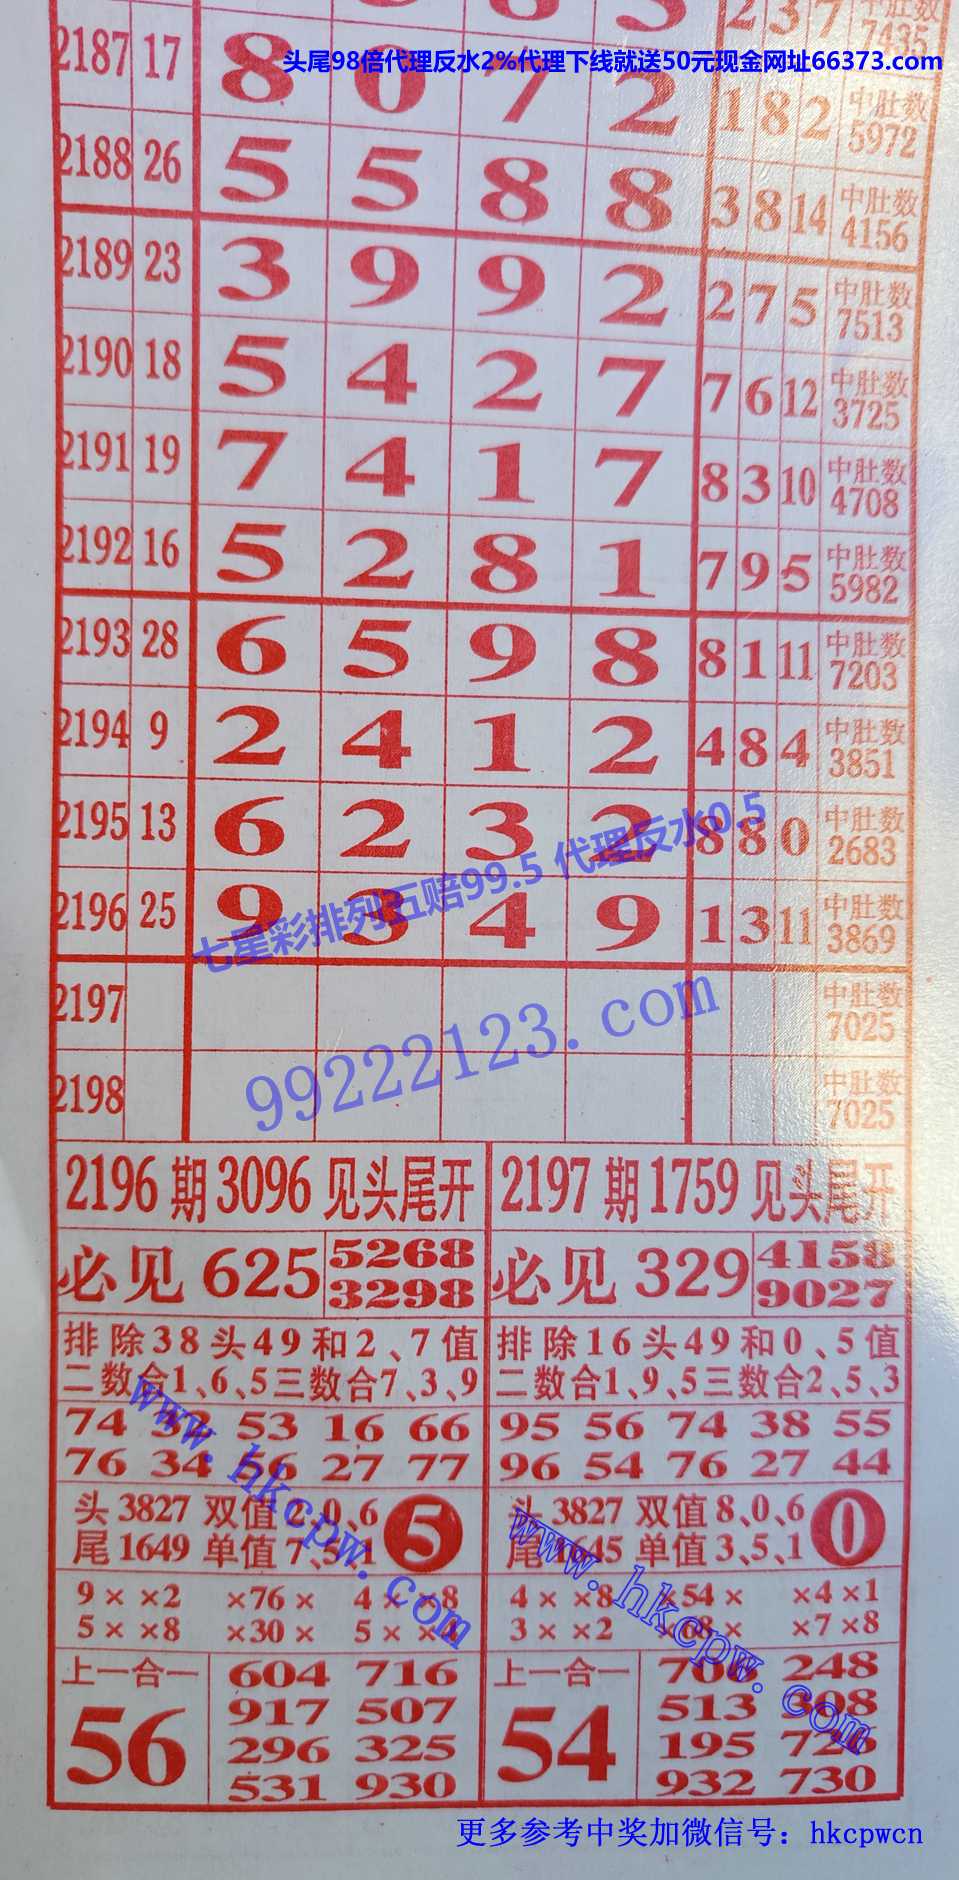 2 3 7 7435
头尾98倍代理反水2%代理下线就送50元现金网址66373.com
2187 17 8 0 7 2 1 8 2 中肚数 5972
2188 26 5 5 8 8 3 8 14 中肚数 4156
2189 23 3 9 9 2 2 7 5 中肚数 7513
2190 18 5 4 2 7 7 6 12 中肚数 3725
2191 19 7 4 1 7 8 3 10 中肚数 4708
2192 16 5 2 8 1 7 9 5 中肚数 5982
2193 28 6 5 9 8 8 1 11 中肚数 7203
2194 9 2 4 1 2 4 8 4 中肚数 3851
2195 13 6 2 3 2 8 8 0 中肚数 2683
七星彩排列五赔99.5 代理反水0.5
2196 25 9 3 4 9 1 3 11 中肚数 3869
2197 中肚数 7025
99222123.com
2198 中肚数 7025
2196期3096见头尾开
必见625 5268 3298
排除38头49和2、7值
二数合1、6、5三数合7、3、9
74 32 53 16 66
76 34 56 27 77
头3827 双值2、0、6
尾1649 单值7、5、1
5
9×  ×2 ×76× 4×  ×8
5×  ×8 ×30× 5×
上一合一
56
604 716
917 507
296 325
531 930
www.hkcpw.com
2197期1759见头尾开
必见329 4158 9027
排除16头49和0、5值
二数合1、9、5三数合2、5、3
95 56 74 38 55
96 54 76 27 44
头3827 双值8、0、6
尾 单值3、5、1
0
4×  ×8 ×54× ×4×1
3×  ×2 ×68× ×7×8
上一合一
54
248
513 308
195
932 730
www.hkcpw.com
更多参考中奖加微信号：hkcpwcn